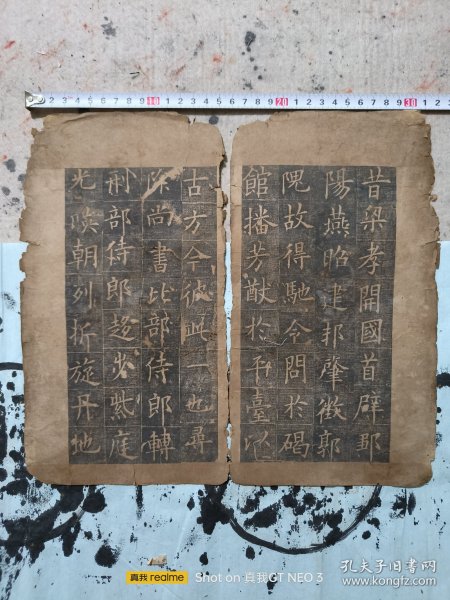 2 3 4 5 6 7 8 9 10 1 2 3 4 5 6 7 8 9 20 1 2 3 4 5 6 7 8 9 30 1 2
昔梁孝開國首辟鄒
陽燕昭建邦肇徵郭
隗故得馳令問於碣
館播芳猷於平臺以
古方今彼此一也尋
除尚書比部侍郎轉
刑部侍郎趍步紫庭
光暎朝列折旋丹地
真我 realme Shot on 真我GT NEO 3
孔夫子旧书网
www.kongfz.com